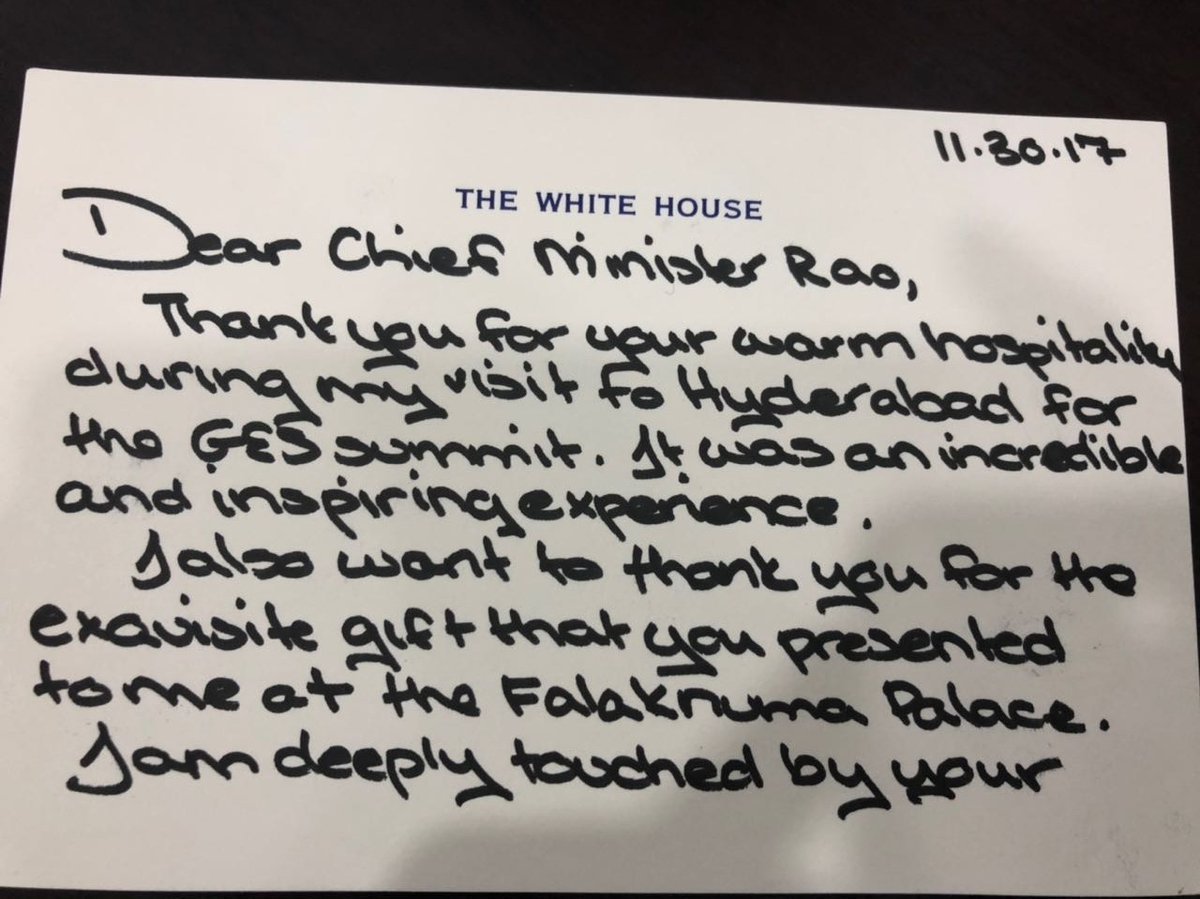 11.30.17
THE WHITE HOUSE
Dear Chief Minister Rao,
Thank you for your warm hospitality
during my visit to Hyderabad for
the GES summit. It was an incredible
and inspiring experience.
I also want to thank you for the
exquisite gift that you presented
to me at the Falaknuma Palace.
I am deeply touched by your